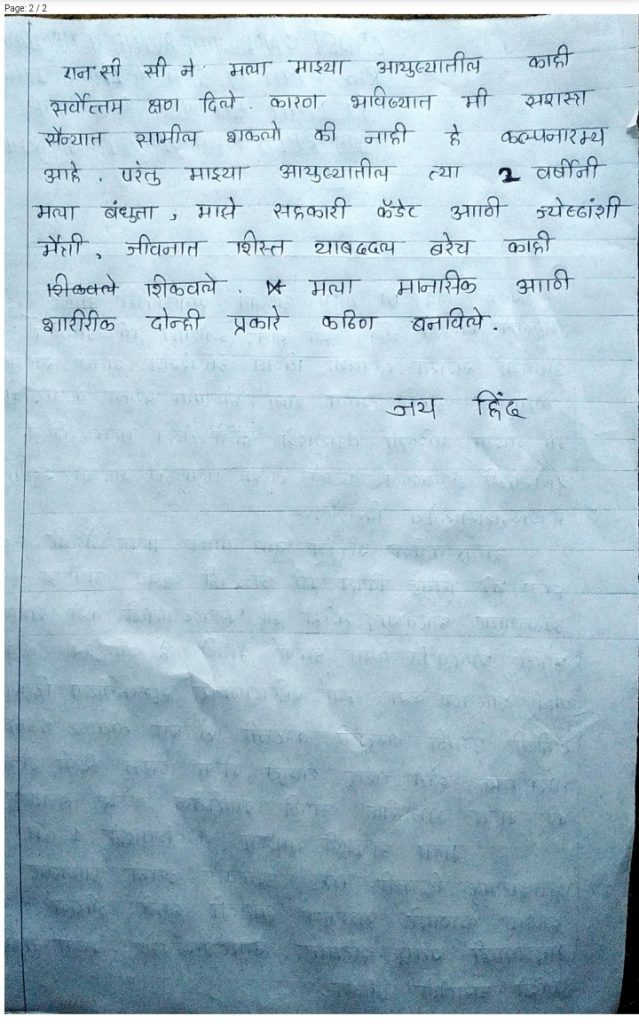 Page: 2 / 2
एन सी सी ने मला माझ्या आयुष्यातील काही
सर्वोत्तम क्षण दिले. कारण भविष्यात मी सशस्त्र
सैन्यात सामील शकलो की नाही हे कल्पनारम्य
आहे. परंतु माझ्या आयुष्यातील त्या 2 वर्षांनी
मला बंधुता, माझे सहकारी कॅडेट आणि ज्येष्ठांशी
मैत्री, जीवनात शिस्त याबद्दल बरेच काही
शिकवले शिकवले. मला मानसिक आणि
शारीरीक दोन्ही प्रकारे कठिण बनविले.
जय हिंद